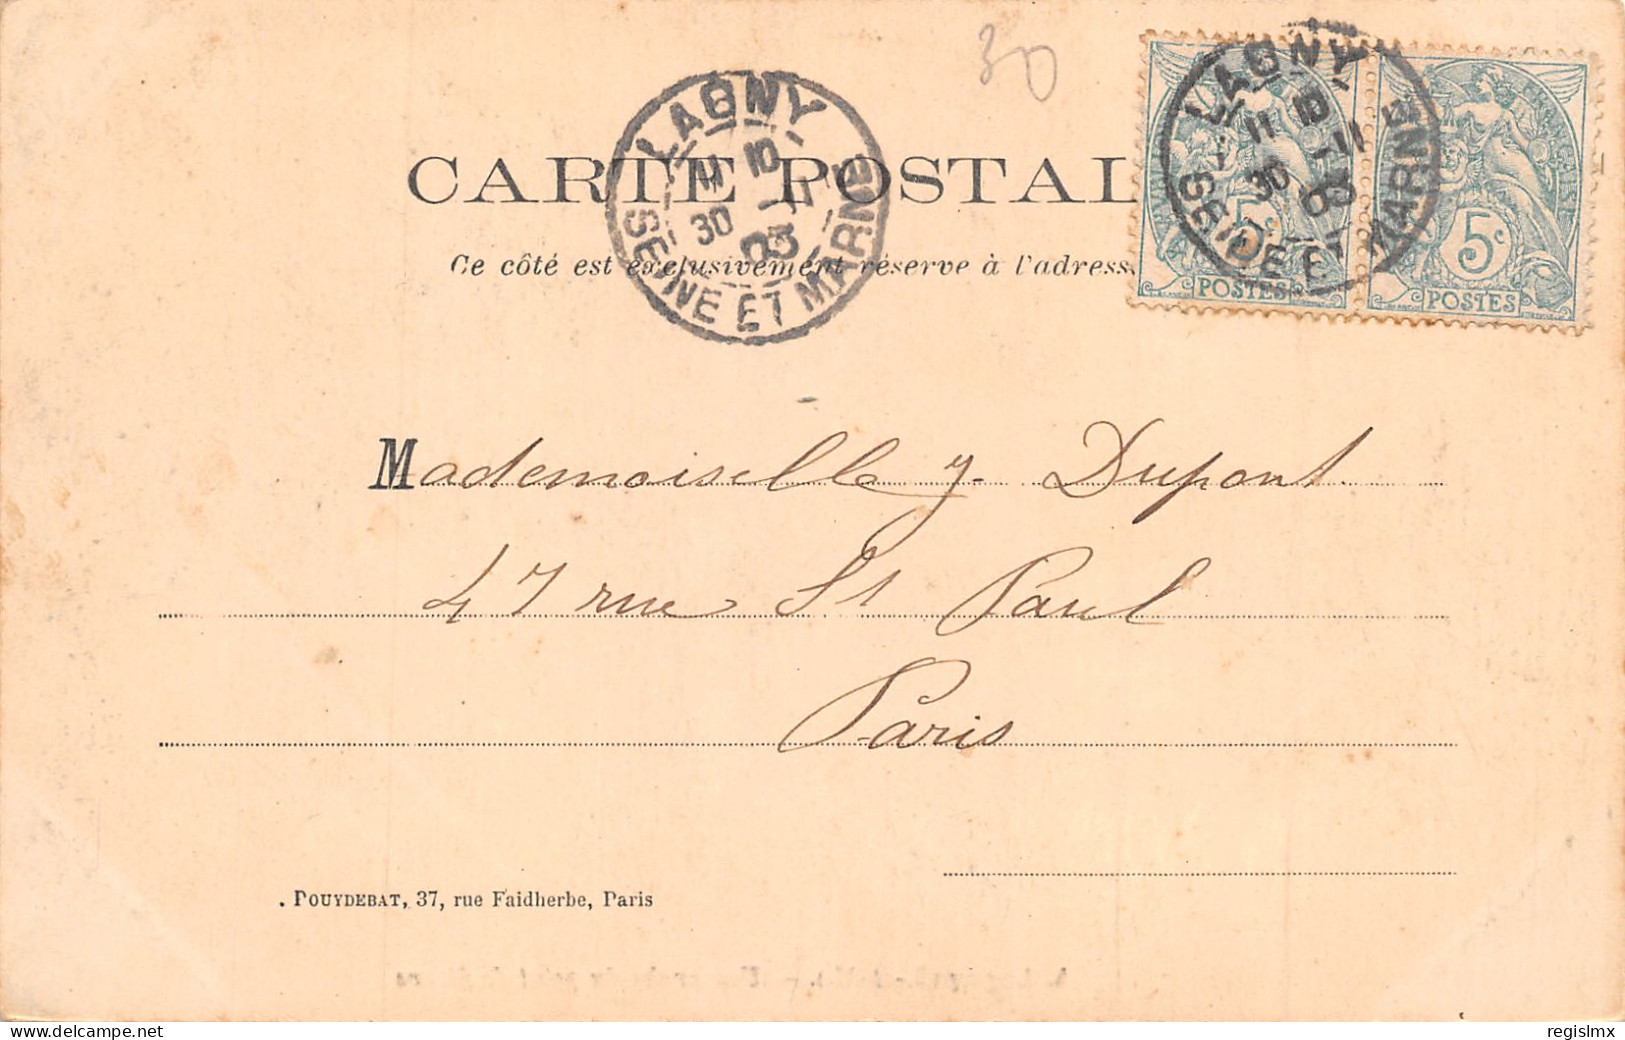 30
CARTE POSTAL
Ce côté est exclusivement réservé à l'adress
LAGNY
11 10
30 -11
03
SEINE ET MARNE
LAGNY
11 10
30 -11
03
SEINE ET MARNE
5c 5c
POSTES POSTES
Mademoiselle J. Dupont.
47 rue St Paul
Paris
. POUYDEBAT, 37, rue Faidherbe, Paris
delcampe.net
regislmx